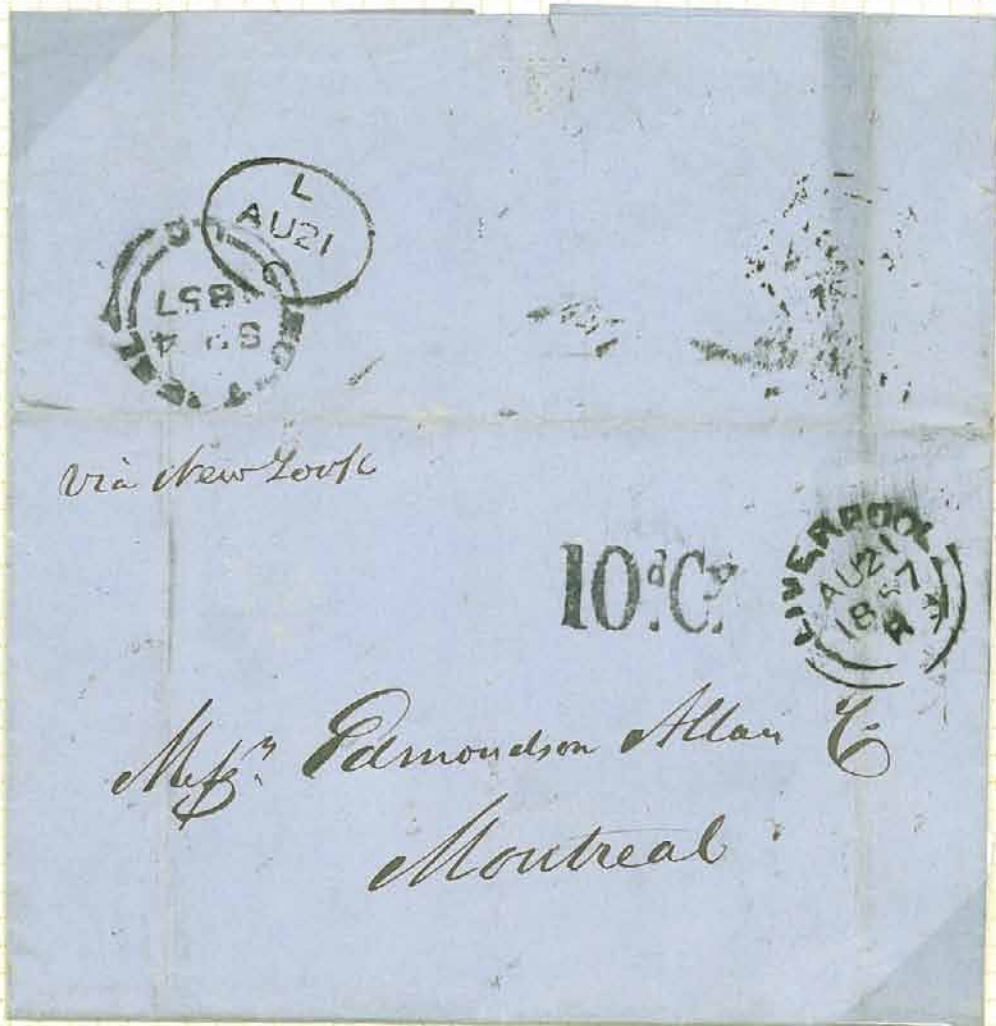 L
AU21
SP 4
1857
via New York
10d Cy
LIVERPOOL
AU21
1857
Messrs Edmondson Allan Co
Montreal